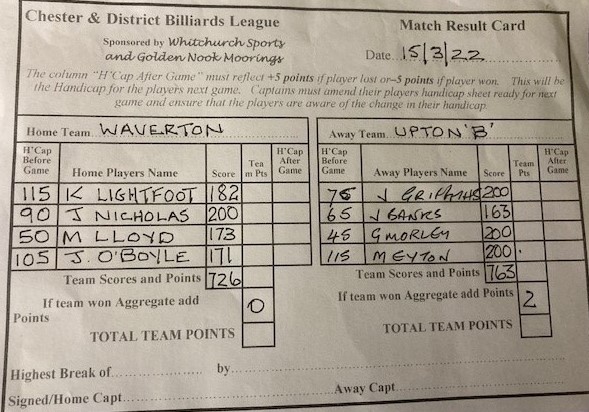 Chester & District Billiards League
Match Result Card
Sponsored by Whitchurch Sports
and Golden Nook Moorings
Date 15/3/22
The column "H'Cap After Game" must reflect +5 points if player lost or–5 points if player won. This will be
the Handicap for the players next game. Captains must amend their players handicap sheet ready for next
game and ensure that the players are aware of the change in their handicap
Home Team WAVERTON
H'Cap Before Game Home Players Name Score Tea m Pts H'Cap After Game
115 K LIGHTFOOT 182
90 J NICHOLAS 200
50 M LLOYD 173
105 J. O'BOYLE 171
Team Scores and Points 726
If team won Aggregate add
Points 0
TOTAL TEAM POINTS
Away Team UPTON 'B'
H'Cap Before Game Away Players Name Score Team Pts H'Cap After Game
75 J GRIFFITHS 200
65 J BANKS 163
45 G MORLEY 200
115 M EYTON 200
Team Scores and Points 763
If team won Aggregate add Points 2
TOTAL TEAM POINTS
Highest Break of by
Signed/Home Capt Away Capt